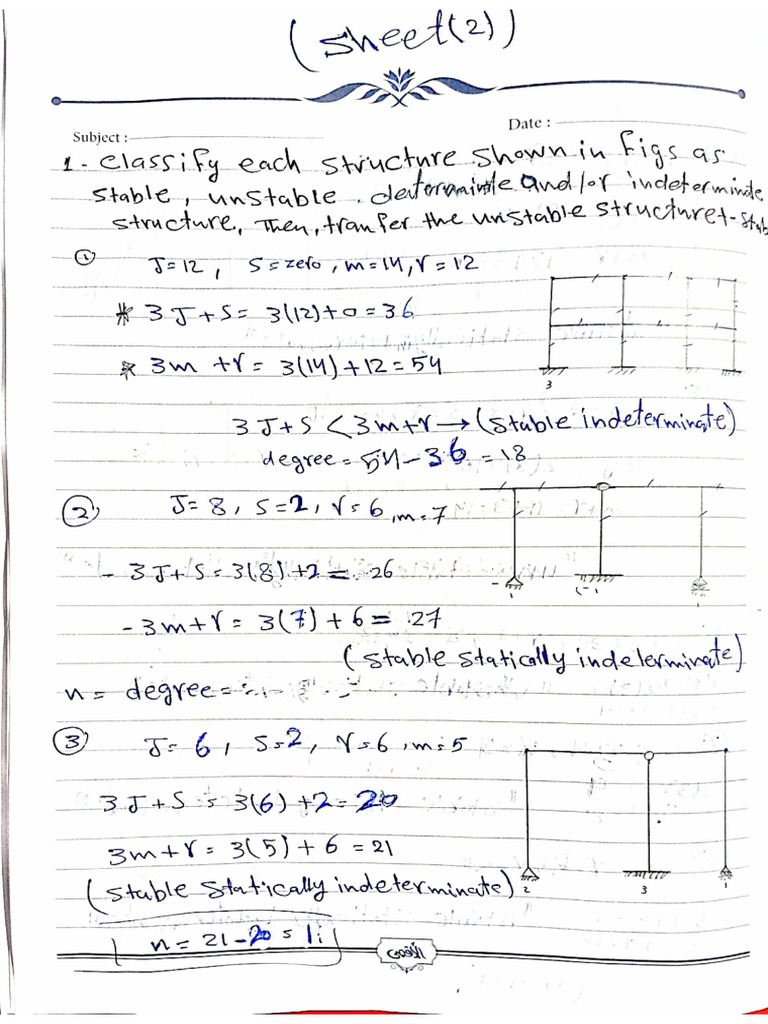 (sheet(2))
Date :
Subject :
1- classify each structure shown in Figs as
stable, unstable. and/or indeterminate
structure, Then, tranfer the unstable structure
① J=12, S=zero, m=14, r=12
* 3J+S= 3(12)+0=36
* 3m+r= 3(14)+12=54
3
3J+S < 3m+r → (stable indeterminate)
degree= 54-36 =18
② J=8, S=2, r=6, m=7
- 3J+S=3(8)+2= 26
- 3m+r= 3(7)+6= 27
(stable statically indelerminate)
n= degree=
③ J=6, S=2, r=6, m=5
3J+S = 3(6)+2=20
3m+r= 3(5)+6=21
(stable statically indeterminate)
2 3 1
n= 21-20=1